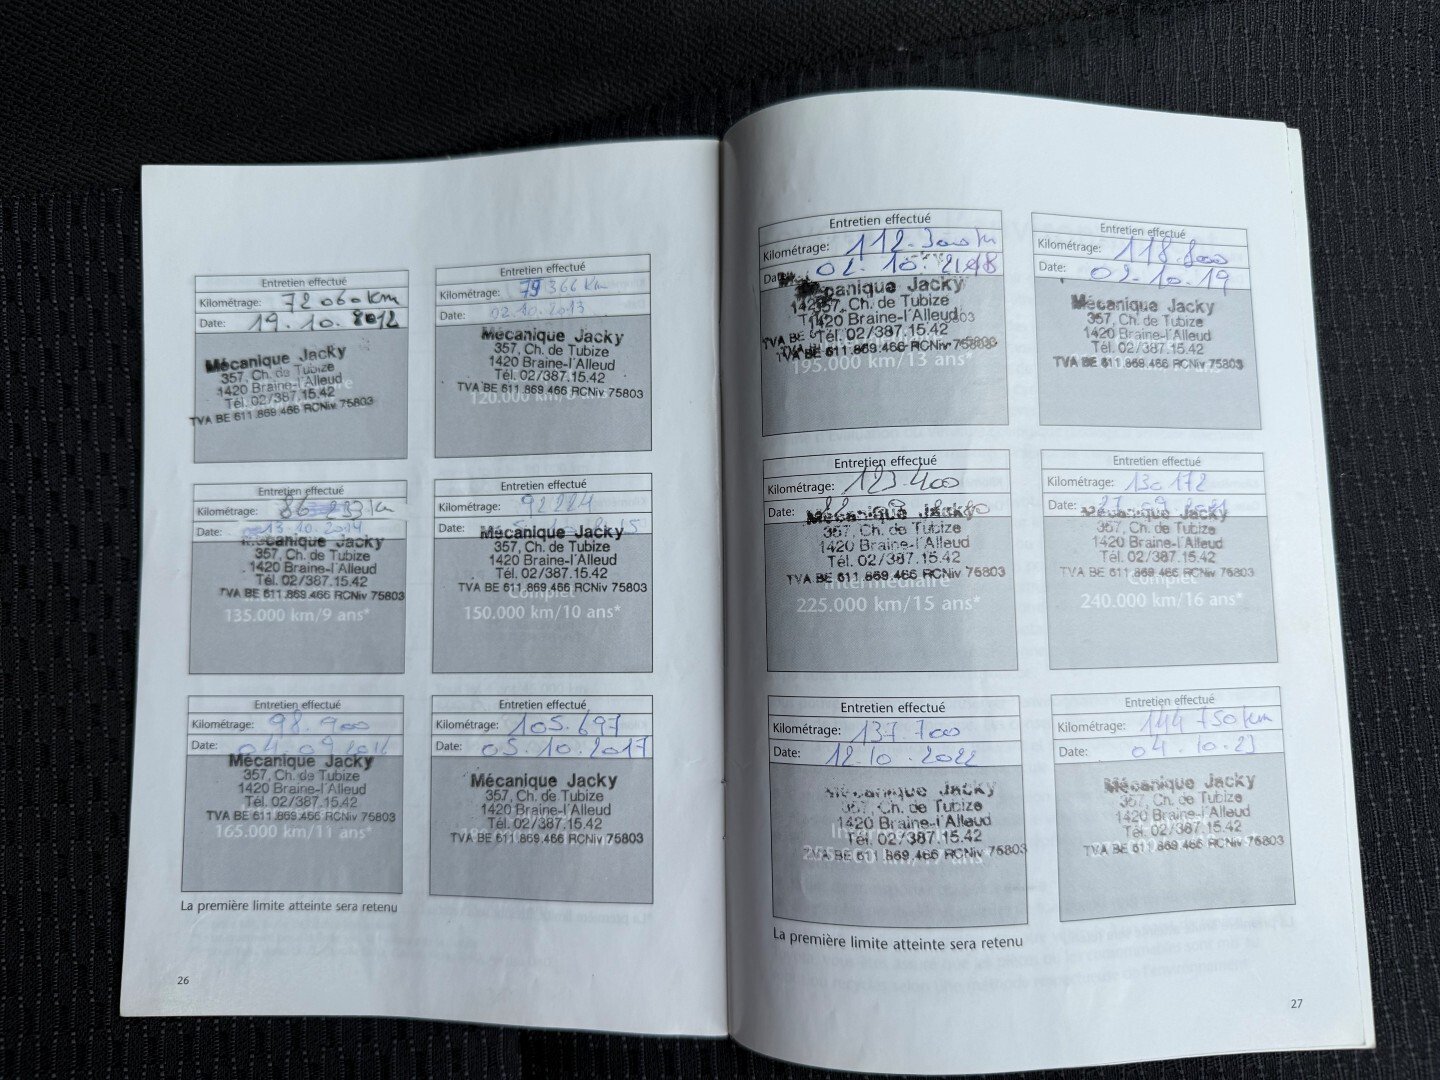 Entretien effectué
Kilométrage: 72 060 km
Date: 19.10.2012
Mécanique Jacky
357, Ch. de Tubize
1420 Braine-l'Alleud
Tél. 02/387.15.42
TVA BE 611.869.466 RCNiv 75803
Entretien effectué
Kilométrage: 79 366 km
Date: 02.10.2013
Mécanique Jacky
357, Ch. de Tubize
1420 Braine-l'Alleud
Tél. 02/387.15.42
TVA BE 611.869.466 RCNiv 75803
120.000 km/
Entretien effectué
Kilométrage: 86 233 km
Date: 13.10.2014
Mécanique Jacky
357, Ch. de Tubize
1420 Braine-l'Alleud
Tél. 02/387.15.42
TVA BE 611.869.466 RCNiv 75803
135.000 km/9 ans*
Entretien effectué
Kilométrage: 92 224
Date:
Mécanique Jacky
357, Ch. de Tubize
1420 Braine-l'Alleud
Tél. 02/387.15.42
TVA BE 611.869.466 RCNiv 75803
Complet
150.000 km/10 ans*
Entretien effectué
Kilométrage: 98.900
Date: 04.09.2016
Mécanique Jacky
357, Ch. de Tubize
1420 Braine-l'Alleud
Tél. 02/387.15.42
TVA BE 611.869.466 RCNiv 75803
165.000 km/11 ans*
Entretien effectué
Kilométrage: 105.697
Date: 05.10.2017
Mécanique Jacky
357, Ch. de Tubize
1420 Braine-l'Alleud
Tél. 02/387.15.42
TVA BE 611.869.466 RCNiv 75803
La première limite atteinte sera retenu
26
Entretien effectué
Kilométrage: 112.300 km
02.10.
Mécanique Jacky
Ch. de Tubize
1420 Braine-l'Alleud
Tél. 02/387.15.42
TVA BE 611.869.466 RCNiv
195.000 km/13 ans*
Entretien effectué
Kilométrage: 118.800
Date: 02.10.19
Mécanique Jacky
357, Ch. de Tubize
1420 Braine-l'Alleud
Tél. 02/387.15.42
TVA BE 611.869.466 RCNiv 75803
Entretien effectué
Kilométrage: 123.400
Date:
Mécanique Jacky
357, Ch. de Tubize
1420 Braine-l'Alleud
Tél. 02/387.15.42
TVA BE 611.869.466 RCNiv 75803
Intermédiaire
225.000 km/15 ans*
Entretien effectué
Kilométrage: 130 172
Date: 27.09.21
Mécanique Jacky
357, Ch. de Tubize
1420 Braine-l'Alleud
Tél. 02/387.15.42
TVA BE 611.869.466 RCNiv 75803
Complet
240.000 km/16 ans*
Entretien effectué
Kilométrage: 137.700
Date: 12.10.2022
Mécanique Jacky
357, Ch. de Tubize
1420 Braine-l'Alleud
Tél. 02/387.15.42
TVA BE 611.869.466 RCNiv 75803
Entretien effectué
Kilométrage: 144 750 km
Date: 04.10.23
Mécanique Jacky
357, Ch. de Tubize
1420 Braine-l'Alleud
Tél. 02/387.15.42
TVA BE 611.869.466 RCNiv 75803
La première limite atteinte sera retenu
27